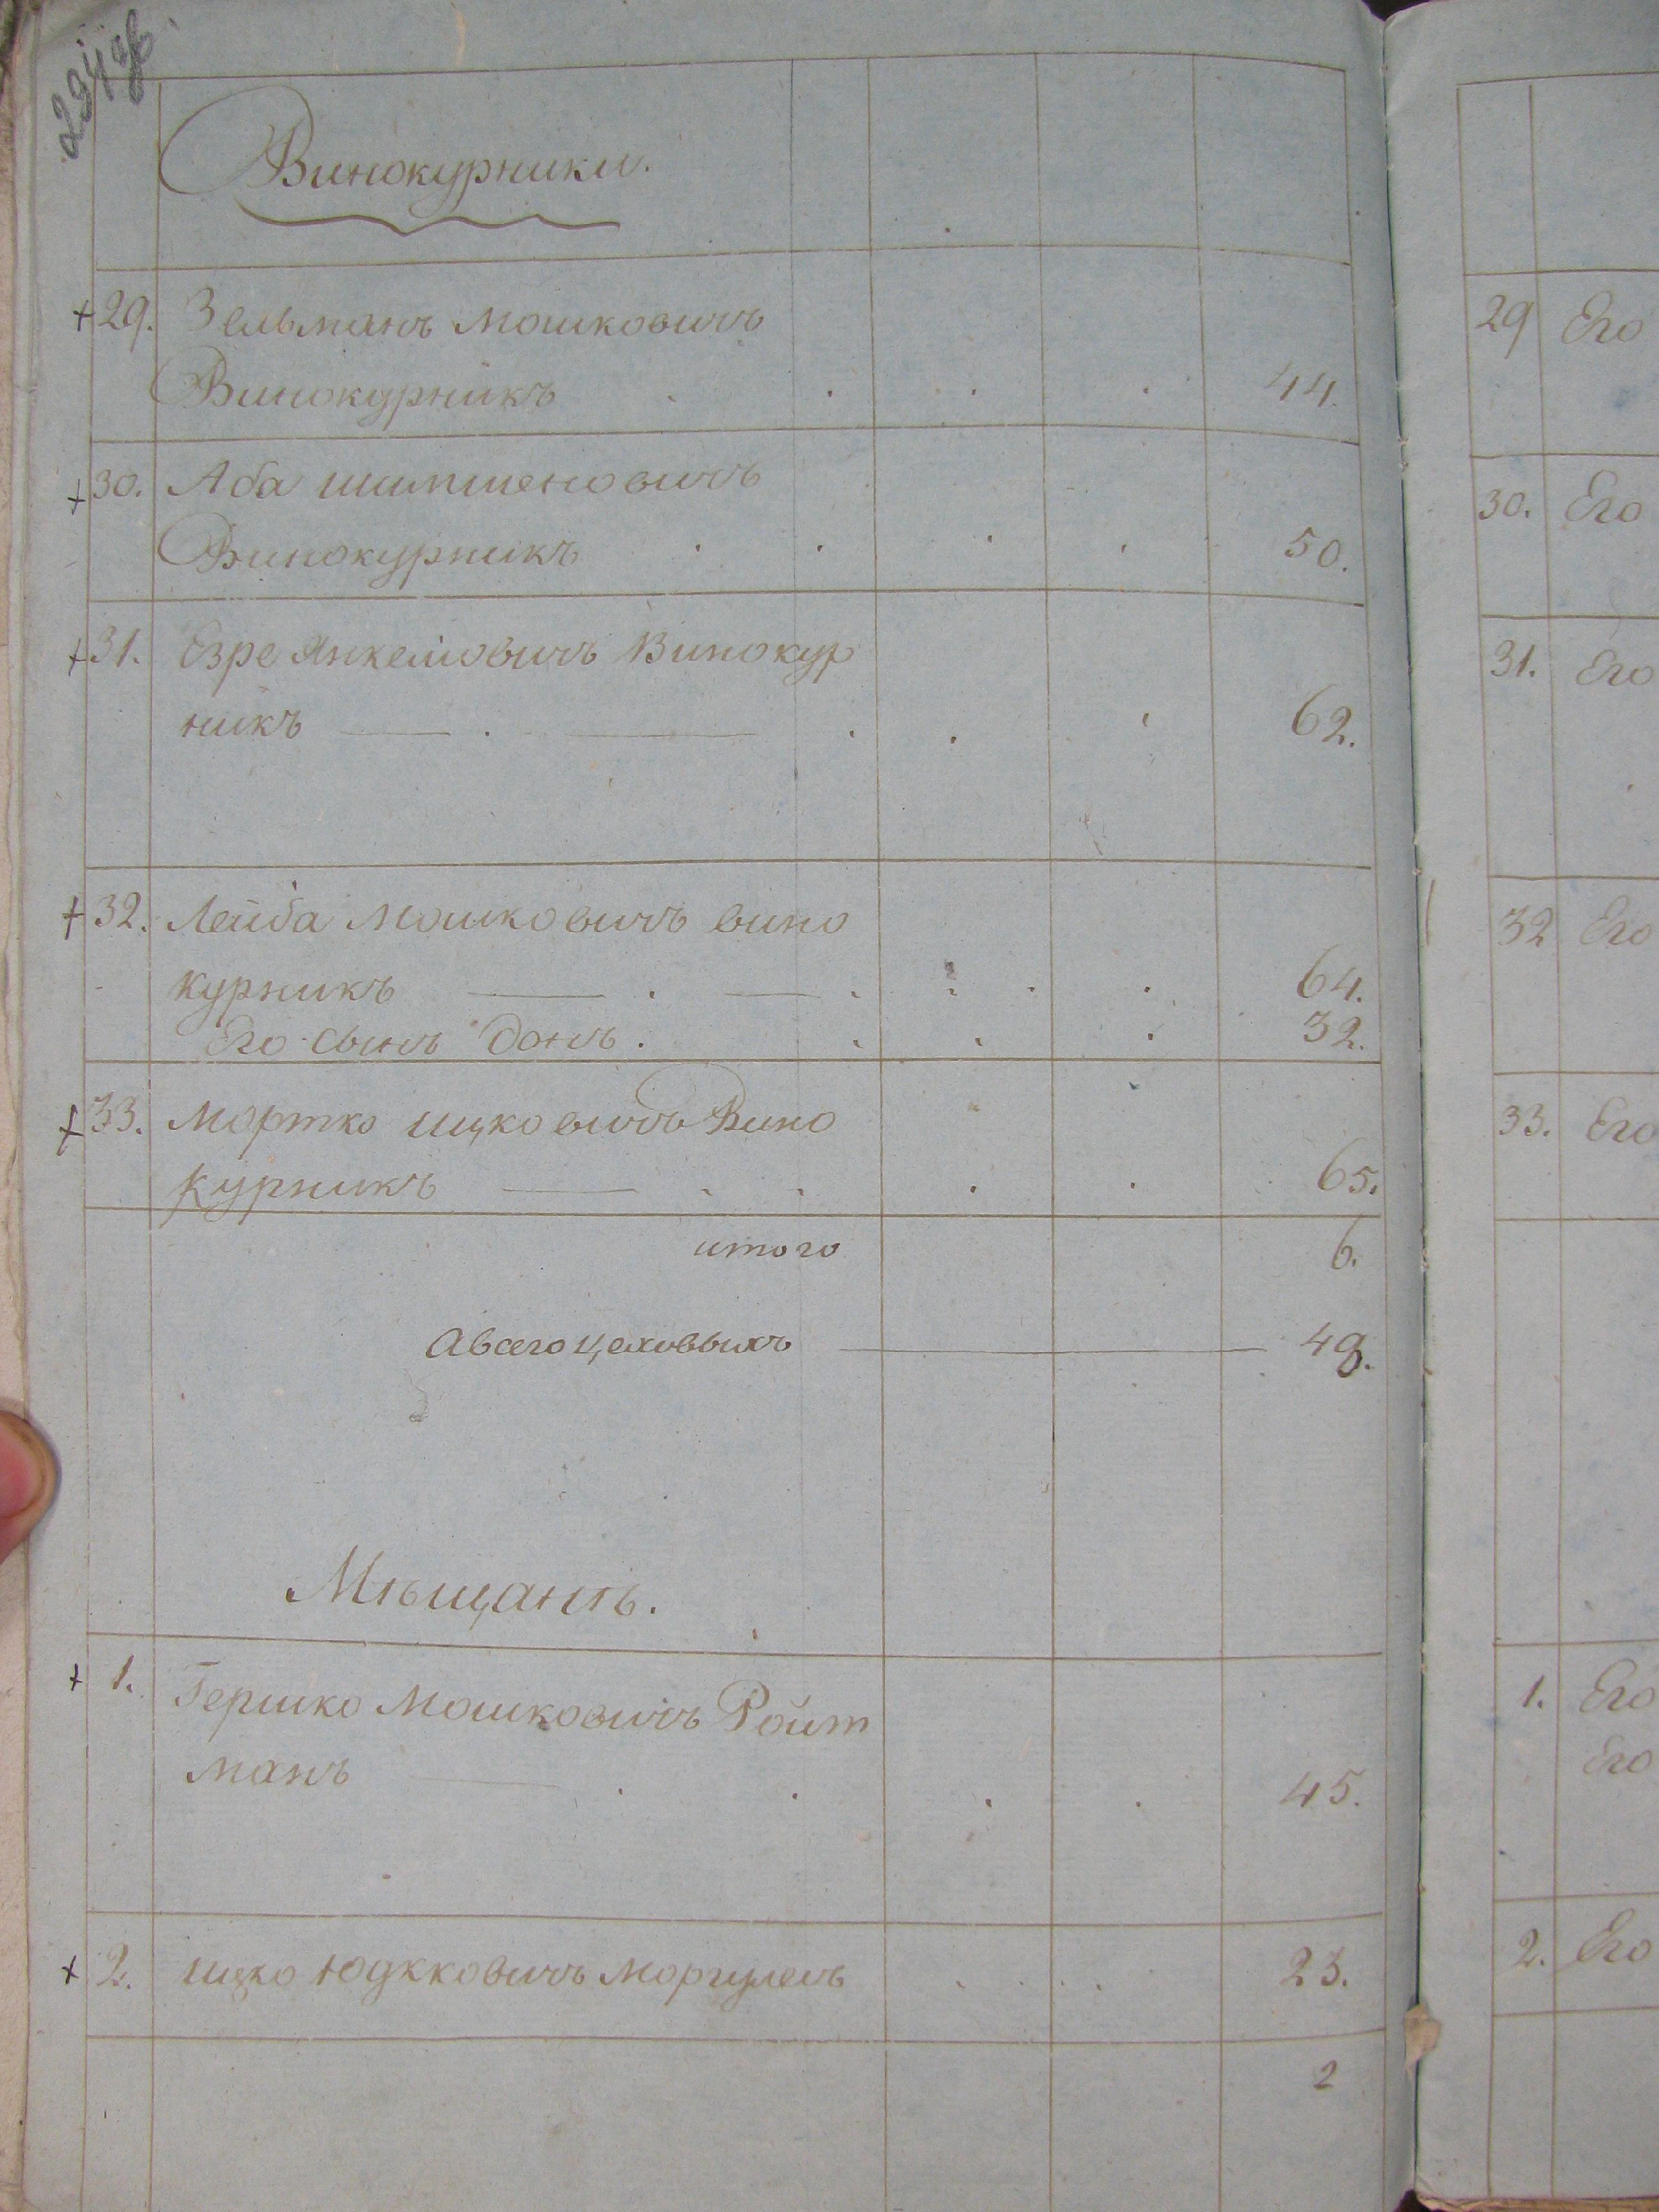 294 об
Винокурники.
+ 29. Зельманъ Мошковичъ
Винокурникъ . . . . 44.
+ 30. Аба шимшеновичъ
Винокурникъ . . . . 50.
+ 31. Езре Янкелиовичъ Винокур
никъ . . . . 62.
+ 32. Лейба Мошковичъ вино
курникъ . . . . 64.
Его сынъ Донъ . . . . 32.
+ 33. Мортко ицковичъ Вино
курникъ . . . . 65.
итого 6.
Авсего цеховвыхъ 49.
Мѣщанѣ.
+ 1. Гершко Мошковичъ Ройт
манъ . . . . 45.
+ 2. ицко Юдкковичъ Моргулець . . . 23.
2
29 Его
30. Его
31. Его
32 Его
33. Его
1. Его
Его
2. Его